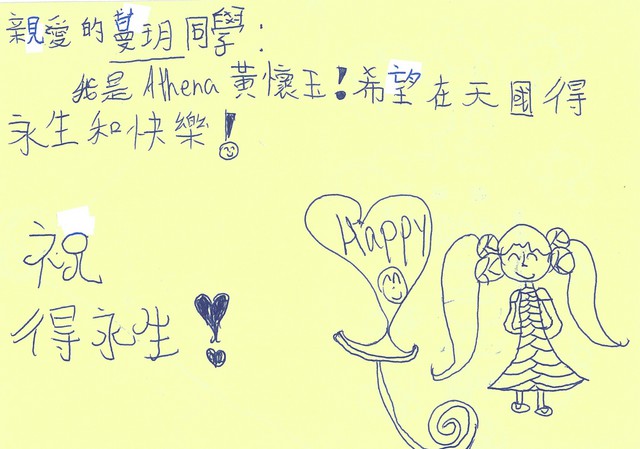 親愛的蔓玥同學：
我是Athena黃懷玉!希望在天國得
永生和快樂!
祝
得永生!
Happy